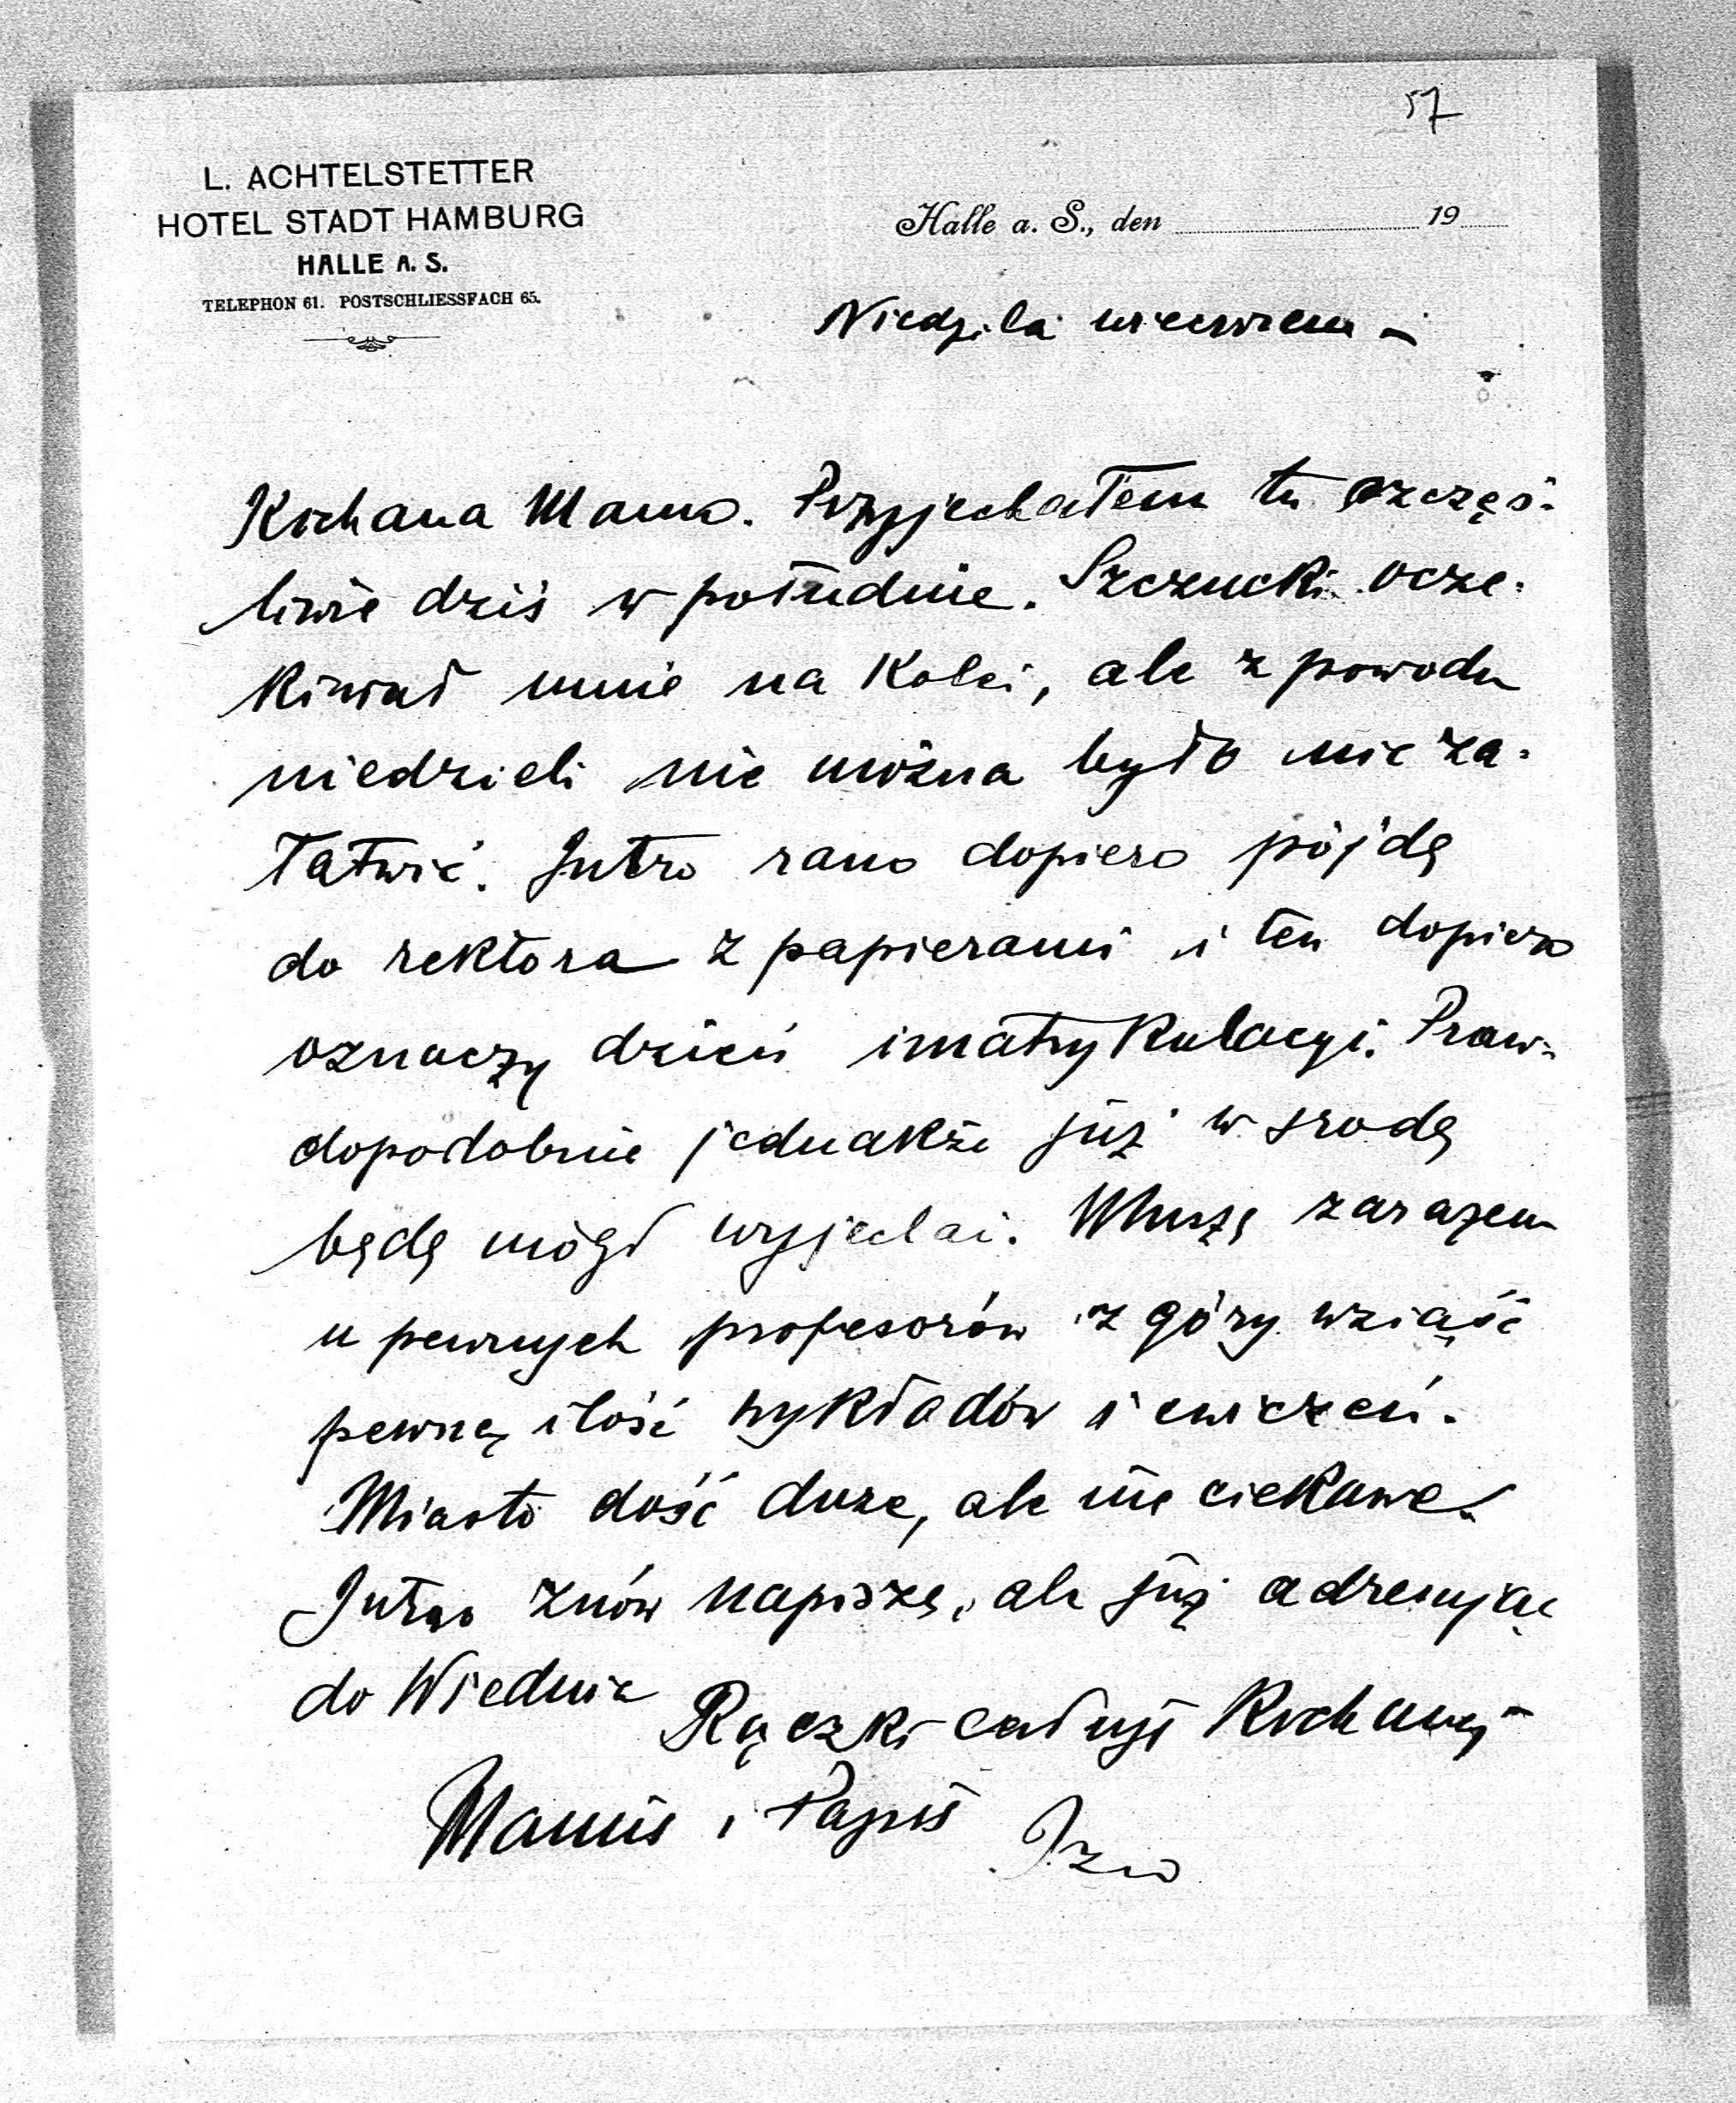 57
L. ACHTELSTETTER
HOTEL STADT HAMBURG
HALLE A. S.
TELEPHON 61. POSTSCHLIESSFACH 65.
Halle a. S., den 19
Niedziela wieczorem –
Kochana Mamo. Przyjechałem tu szczęś-
liwie dziś w południe. Szczucki ocze-
kiwał mnie na kolei, ale z powodu
niedzieli nie można było nic za-
łatwić. Jutro rano dopiero pójdę
do rektora z papierami i ten dopiero
oznaczy dzień imatrykulacyi. Praw-
dopodobnie jednakże już w srodę
będę mógł wyjechać. Muszę zarazem
u pewnych profesorów z góry wziąść
pewną ilość wykładów i cwiczeń.
Miasto dość duże, ale nie ciekawe.
Jutro znów napiszę, ale już adresując
do Wiednia Rączki całuję Kochanej
Mamie i Papie Izio